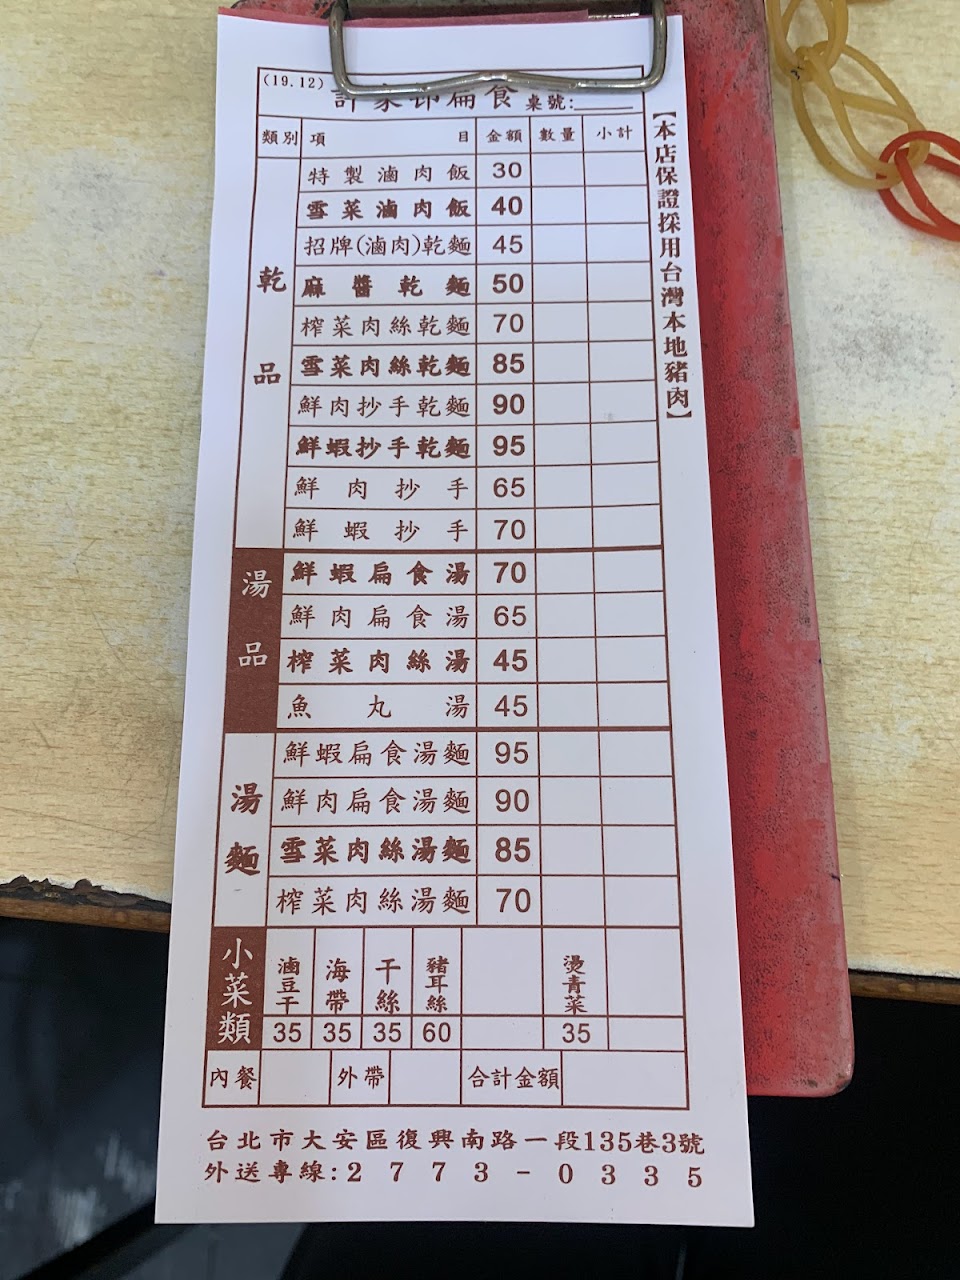 (19.12)
食 桌號:
類別 項目 金額 數量 小計
乾品
特製滷肉飯 30
雪菜滷肉飯 40
招牌(滷肉)乾麵 45
麻醬乾麵 50
榨菜肉絲乾麵 70
雪菜肉絲乾麵 85
鮮肉抄手乾麵 90
鮮蝦抄手乾麵 95
鮮肉抄手 65
鮮蝦抄手 70
湯品
鮮蝦扁食湯 70
鮮肉扁食湯 65
榨菜肉絲湯 45
魚丸湯 45
湯麵
鮮蝦扁食湯麵 95
鮮肉扁食湯麵 90
雪菜肉絲湯麵 85
榨菜肉絲湯麵 70
小菜類
滷豆干 海帶 干絲 豬耳絲 燙青菜
35 35 35 60 35
內餐 外帶 合計金額
【本店保證採用台灣本地豬肉】
台北市大安區復興南路一段135巷3號
外送專線:2773-0335